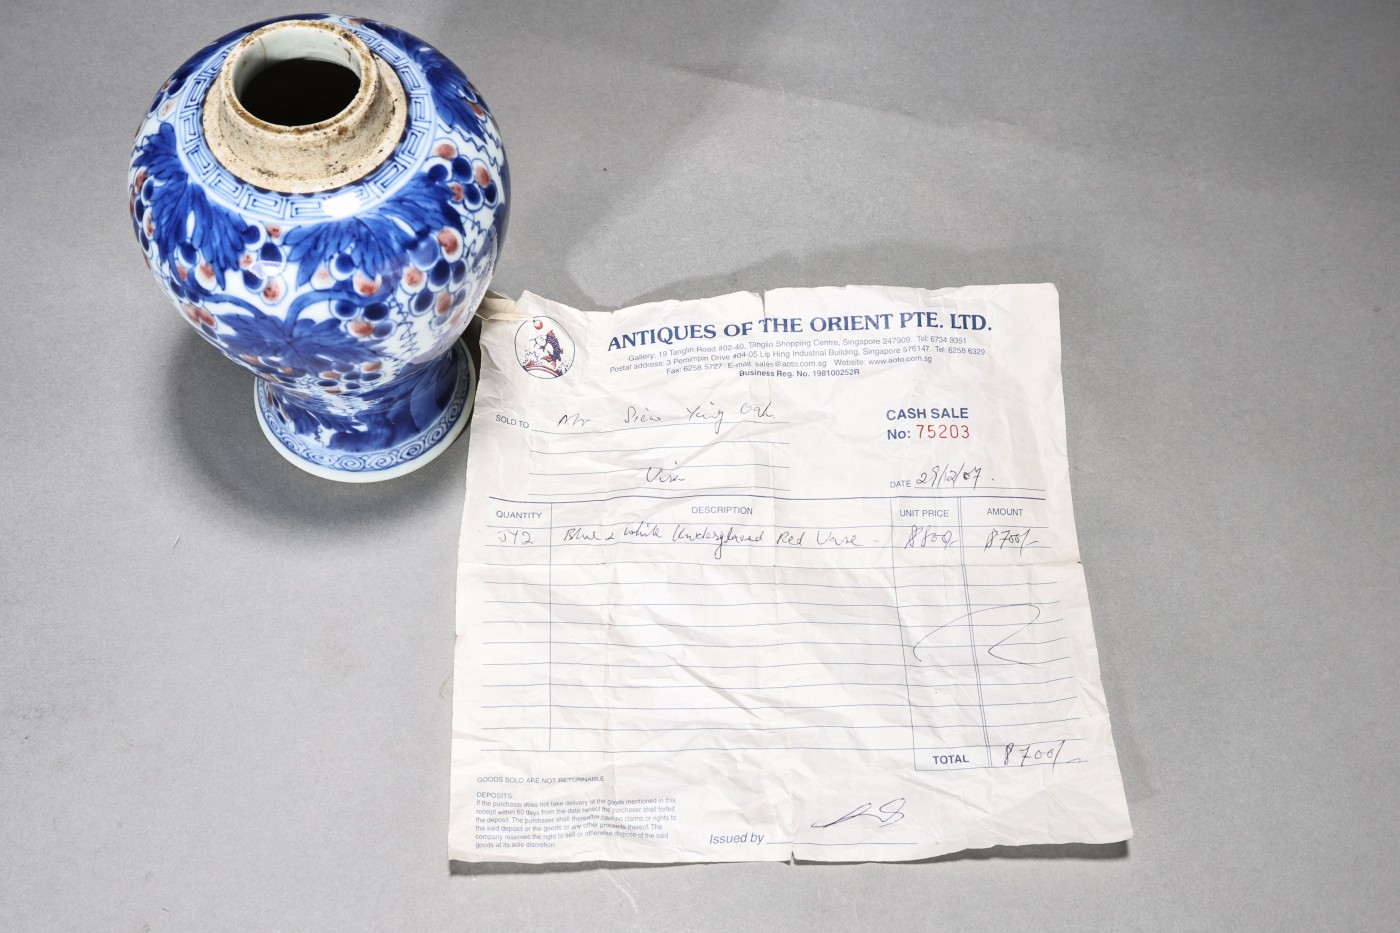 ANTIQUES OF THE ORIENT PTE. LTD.
Gallery: 19 Tanglin Road #02-40, Tanglin Shopping Centre, Singapore 247909. Tel: 6734 9351
Postal address: 3 Pemimpin Drive #04-05 Lip Hing Industrial Building, Singapore 576147. Tel: 6258 6329
Fax: 6258 5727 E-mail: sales@aoto.com.sg Website: www.aoto.com.sg
Business Reg. No. 198100252R
CASH SALE
No: 75203
SOLD TO Mr Siew Yang Oak
Visa
DATE 29/12/07.
QUANTITY DESCRIPTION UNIT PRICE AMOUNT
JY2 Blue & White Underglazed Red Vase - $800/- $700/-
TOTAL $700/-
GOODS SOLD ARE NOT RETURNABLE
DEPOSITS:
If the purchaser does not take delivery of the goods mentioned in this
receipt within 60 days from the date hereof the purchaser shall forfeit
the deposit. The purchaser shall thereafter have no claims or rights to
the said deposit or the goods or any other proceeds thereof. The
company reserves the right to sell or otherwise dispose of the said
goods at its sole discretion.
Issued by